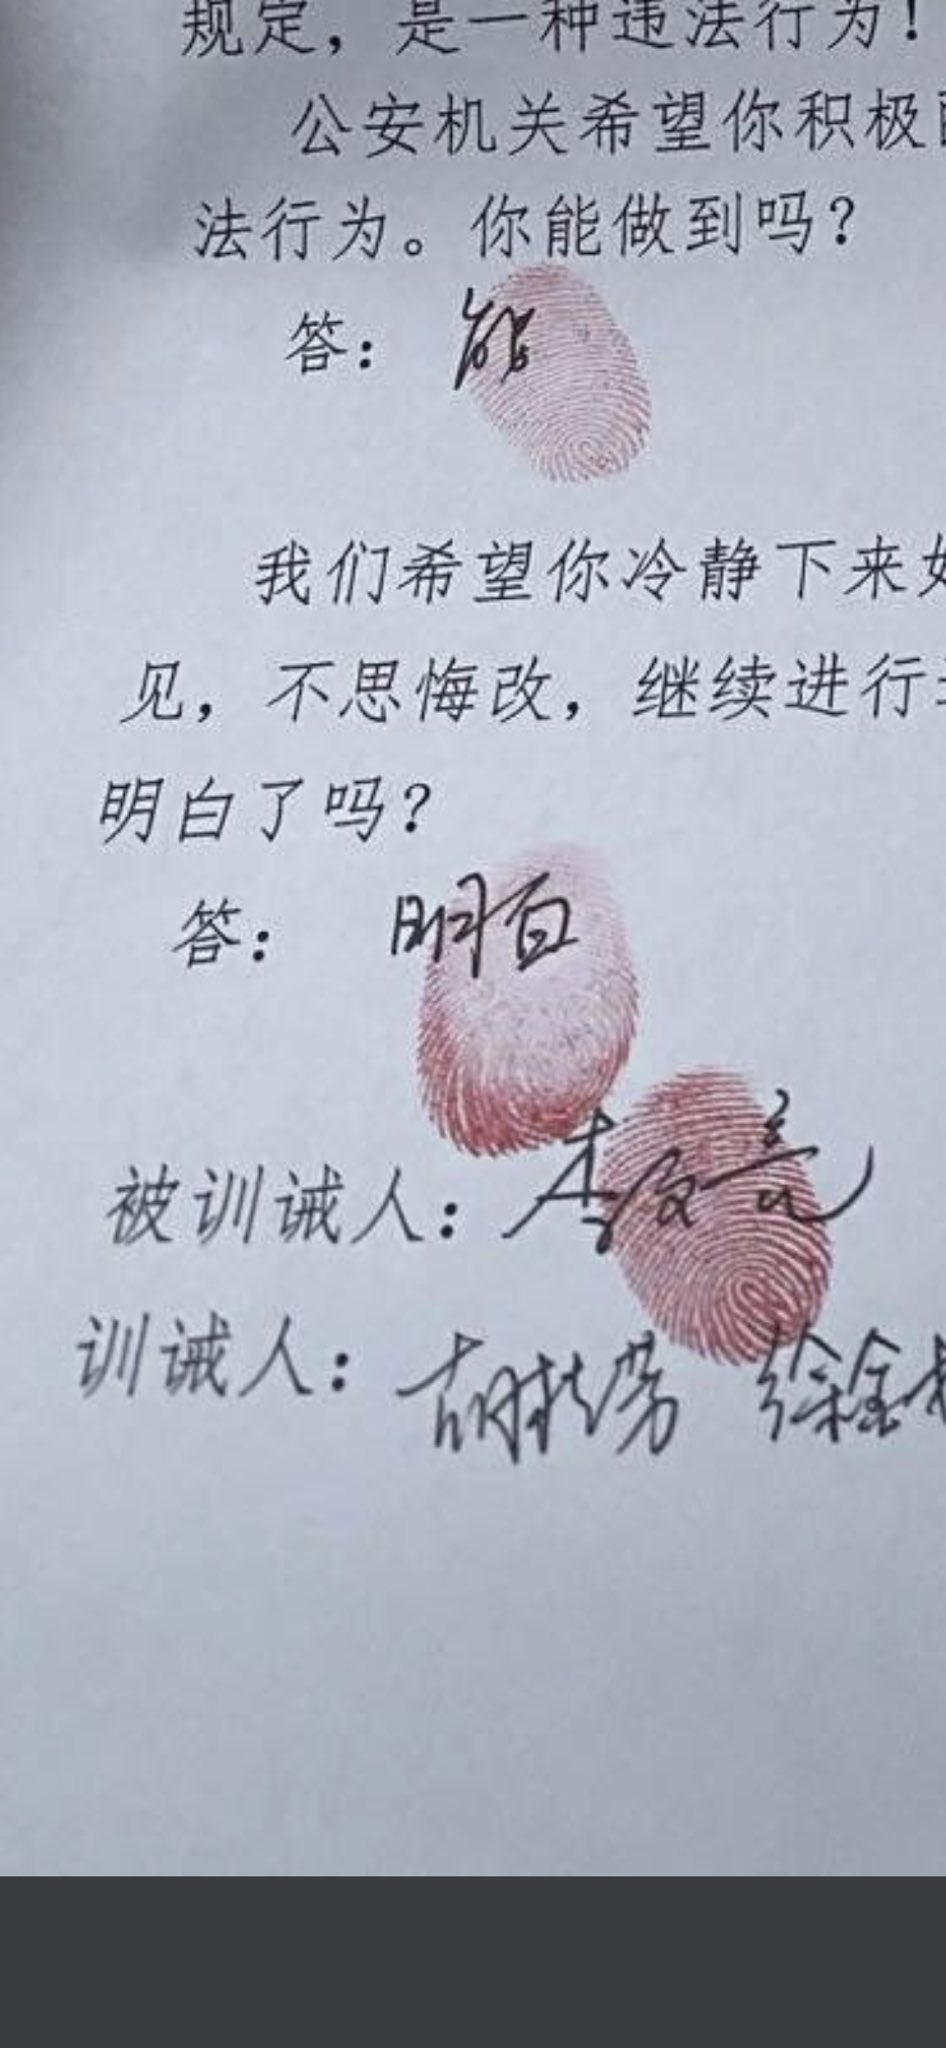 规定，是一种违法行为！
公安机关希望你积极配
法行为。你能做到吗？
答： 能
我们希望你冷静下来好
见，不思悔改，继续进行
明白了吗？
答： 明白
被训诫人： 李文亮
训诫人： 胡桂芳 徐金